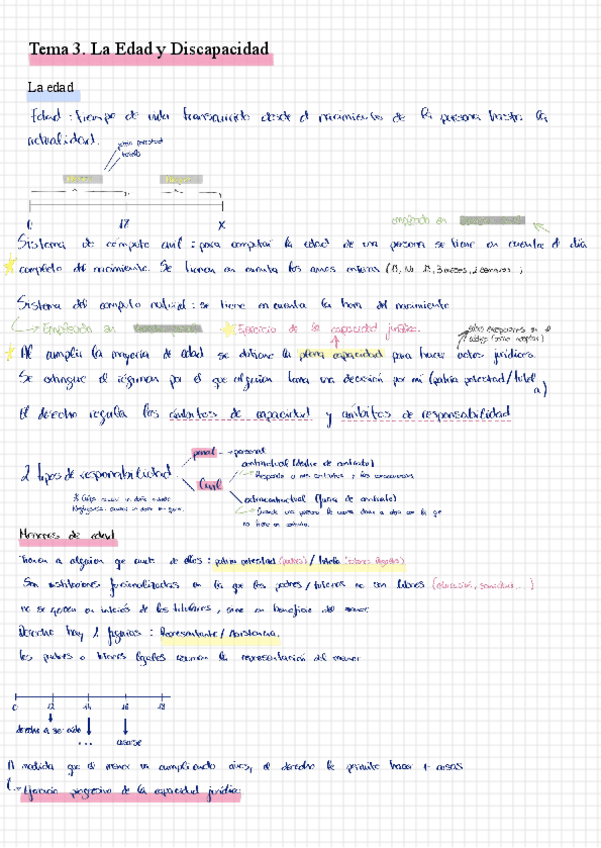 Tema 3. La Edad y Discapacidad
La edad
Edad : tiempo de vida transcurrido desde el nacimiento de la persona hasta la
actualidad.
patria potestad
tutela
0 18 X
empleado en
Sistema de cómputo civil : para computar la edad de una persona se tiene en cuenta el día
completo del nacimiento. Se tienen en cuenta los años enteros
Sistema del computo natural : se tiene en cuenta la hora del nacimiento
Empleación en Ejercicio de la capacidad jurídica.
Al cumplir la mayoría de edad se obtiene la plena capacidad para hacer actos jurídicos.
Se extingue el régimen por el que alguien toma una decisión por mí (patria potestad/tutela)
El derecho regula los ámbitos de capacidad y ámbitos de responsabilidad
2 tipos de responsabilidad
penal → personal
Civil
contractual (dentro de contrato)
extracontractual (fuera de contrato)
Menores de edad
Tienen a alguien que cuide de ellos : patria potestad (padres) / tutela (tutores legales)
Son instituciones funcionalizadas en la que los padres/tutores no son libres (educación, sanidad,...)
no se ejercen en interés de los titulares, sino en beneficio del menor
Derecho hay 2 figuras : Representante / Asistencia.
los padres o tutores legales asumen la representación del menor
0 12 14 16 18
derecho a ser oído
... casarse
A medida que el menor va cumpliendo años, el derecho le permite hacer + cosas
Ejercicio progresivo de la capacidad jurídica